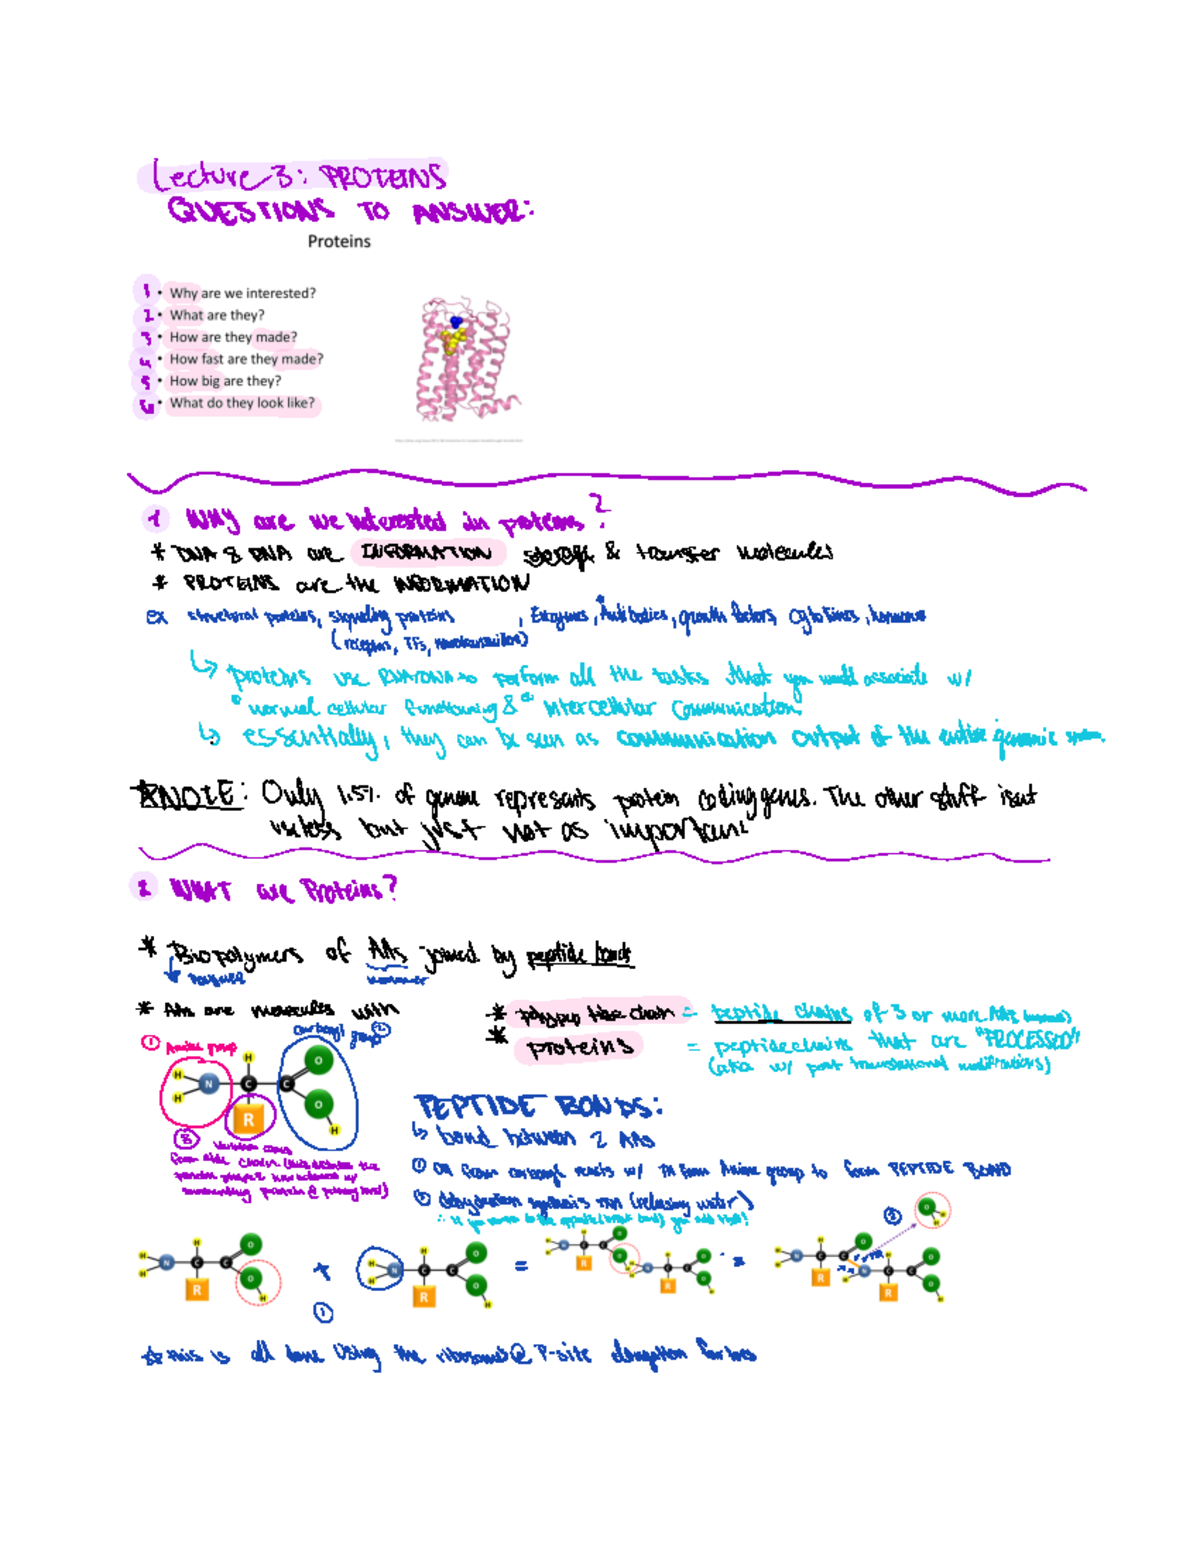 Lecture 3: PROTEINS
QUESTIONS TO ANSWER:
Proteins
1 • Why are we interested?
2 • What are they?
3 • How are they made?
4 • How fast are they made?
5 • How big are they?
6 • What do they look like?
1 WHY are we interested in proteins?
* DNA & DNA are INFORMATION storage & transfer molecules
* PROTEINS are the INFORMATION
ex structural proteins, signaling proteins, Enzymes, Antibodies, growth factors, cytokines, hormones
(receptors, TFs, neurotransmitters)
↳ proteins use RNA/DNA to perform all the tasks that you would associate w/
normal cellular functioning & intercellular communication.
↳ essentially, they can be seen as communication output of the entire genomic system.
*NOTE: Only 1.5% of genome represents protein coding genes. The other stuff isnt
useless but just not as important
2 WHAT are Proteins?
* Biopolymers of AAs joined by peptide bonds
↓ polymer monomer
* AAs are molecules with
* polypeptide chain = peptide chains of 3 or more AAs
* proteins = peptide chains that are "PROCESSED"
(aka w/ post translational modifications)
① Amino group
carboxyl group ②
H
H
N
H
C
C
O
O
H
R
③
form side chain
PEPTIDE BONDS:
↳ bond between 2 AAs
① OH from carboxyl reacts w/ H from Amine group to form PEPTIDE BOND
② dehydration synthesis rxn (releasing water)
H H N H C R C O O H
+
①
H H N H C R C O O H
=
H H N H C R C O O H H N H C R C O O H
=
H H N H C R C O N H C R C O O H
②
O H H
☆ this is all done using the ribosomes @ P-site elongation factors